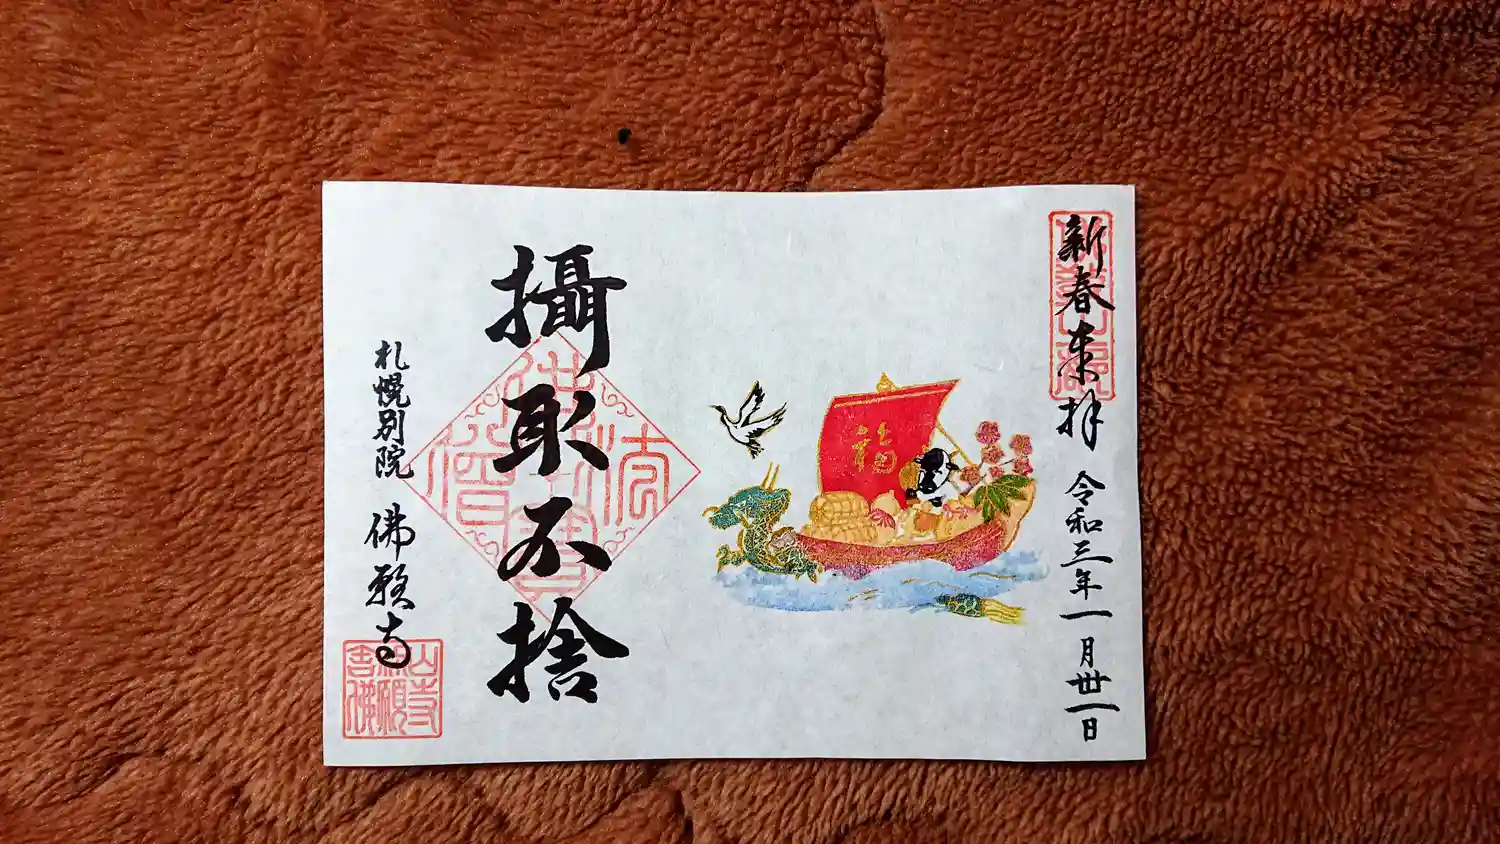 新春来拝 令和三年一月卅一日
福
攝取不捨
札幌別院 佛願寺